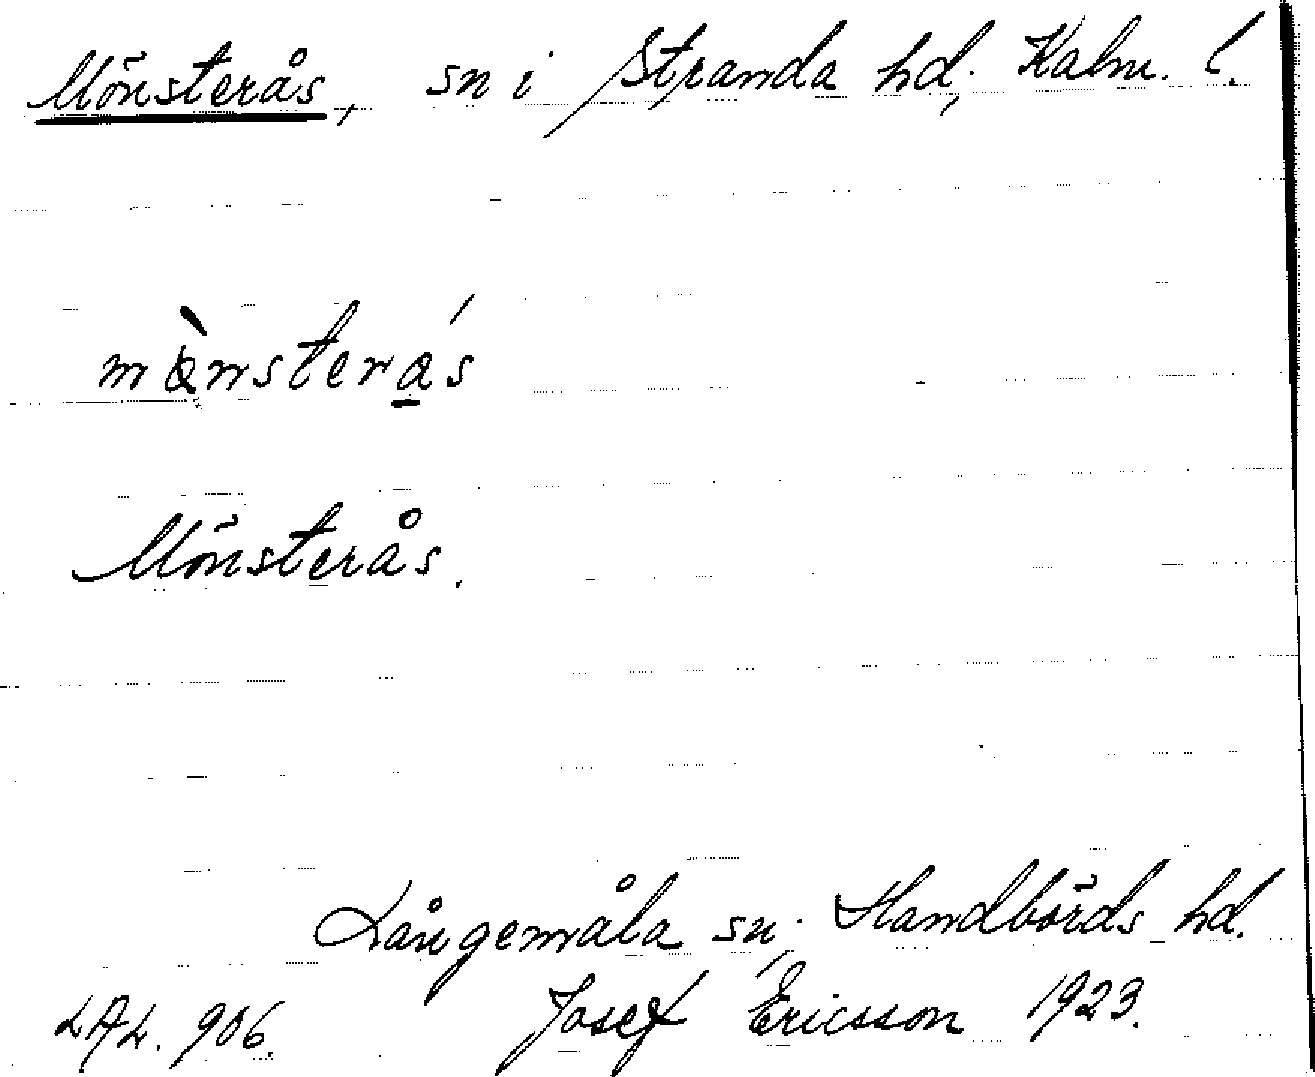 Mönsterås, sn i Stranda hd, Kalm. l.
mønstera̲s
Mönsterås.
Långemåla sn, Handbörds hd.
LAL. 906. Josef Ericsson 1923.